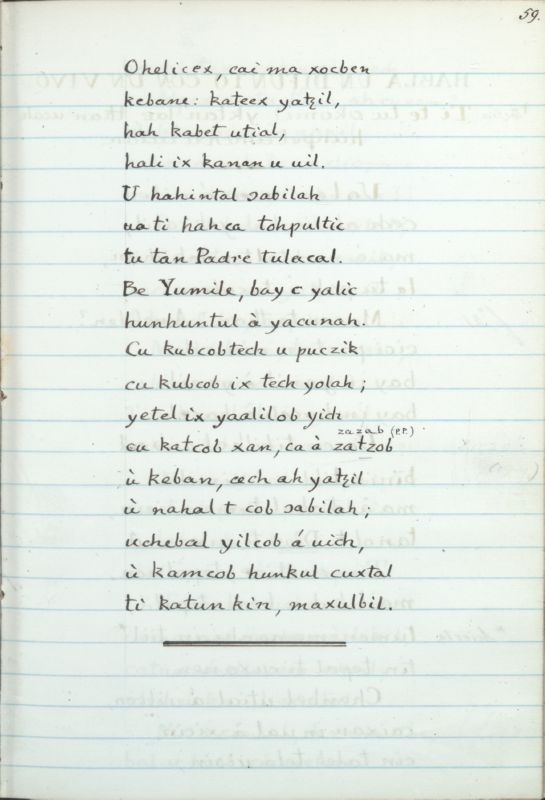 59.
Ohelicex, cai ma xocben
kebane: kateex yatzil,
hah kabet utial,
hali ix kanan u uil.
U hahintal ɔabilah
ua ti hah ca tohpultic
tu tan Padre tulacal.
Be Yumile, bay c yalic
hunhuntul à yacunah.
Cu kubcobtech u puczik
cu kubcob ix tech yolah;
yetel ix yaalilob yich
zazab (P.P.)
cu katcob xan, ca à zatzob
ù keban, cech ah yatzil
ù nahal t cob ɔabilah;
uchebal yilcob á uich,
ù kamcob hunkul cuxtal
ti katun kin, maxulbil.